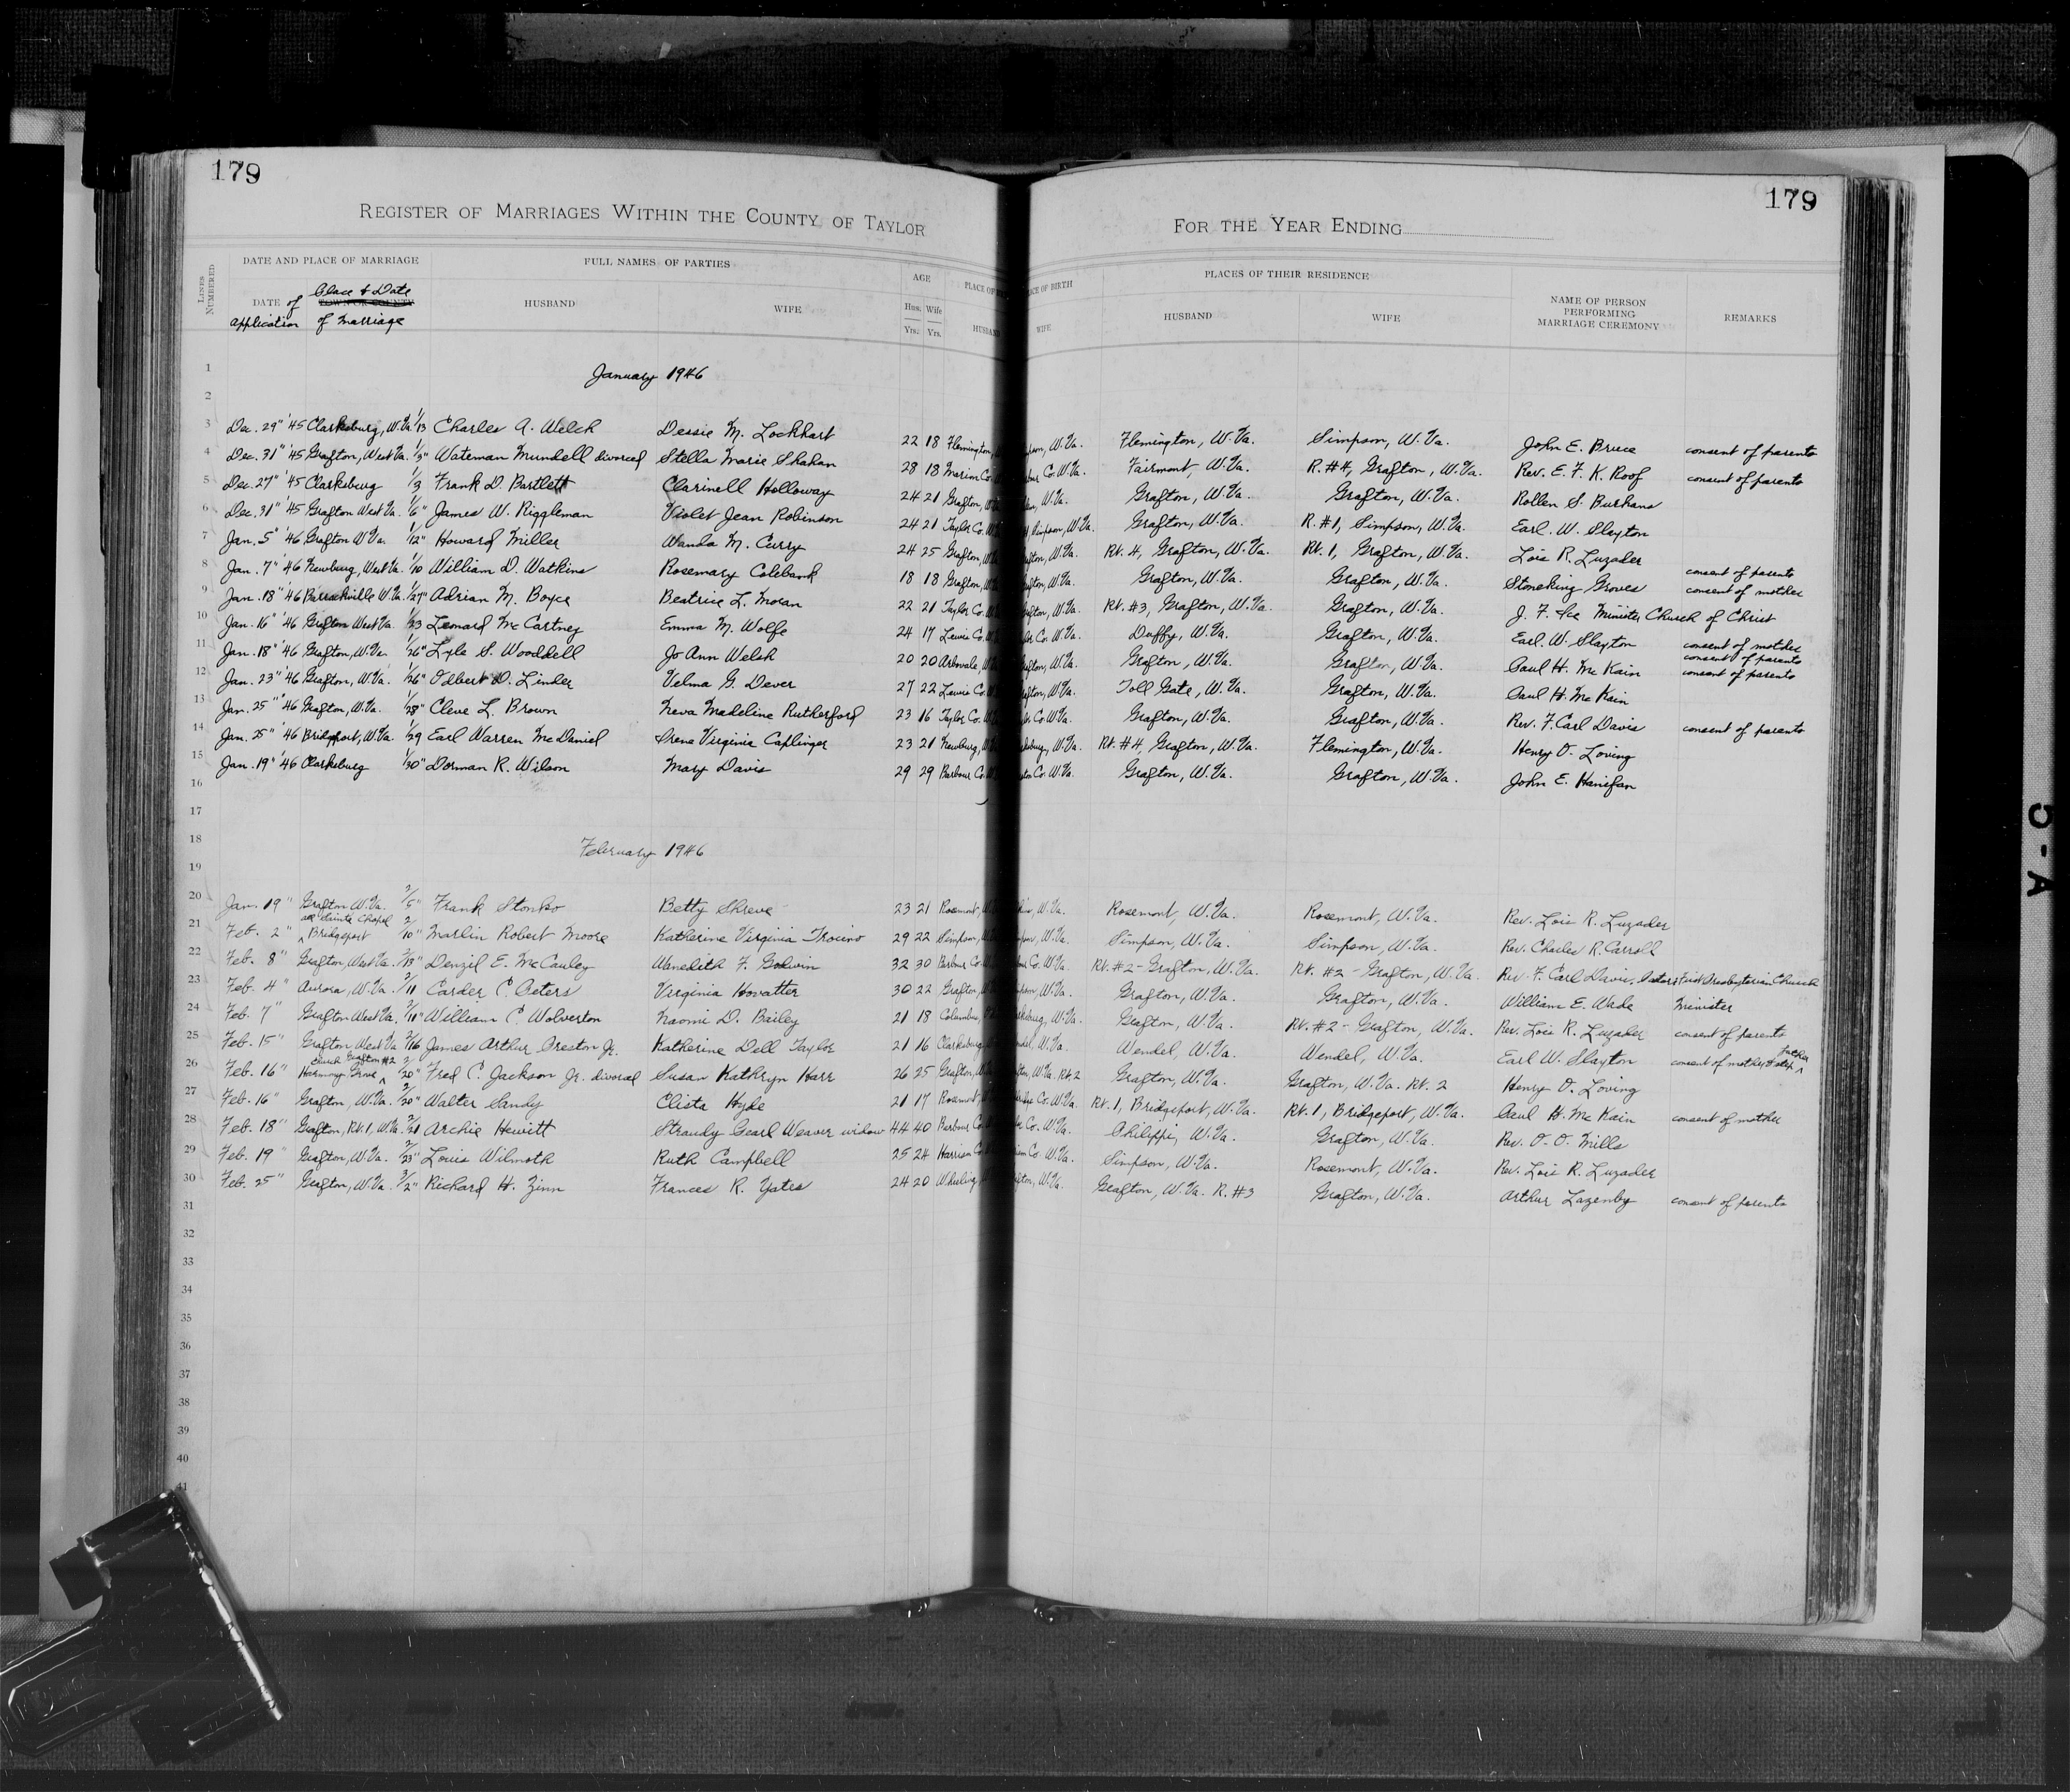 179
179
REGISTER OF MARRIAGES WITHIN THE COUNTY OF TAYLOR
FOR THE YEAR ENDING
LINES NUMBERED
DATE AND PLACE OF MARRIAGE
FULL NAMES OF PARTIES
AGE
PLACE OF
PLACE OF BIRTH
PLACES OF THEIR RESIDENCE
NAME OF PERSON PERFORMING MARRIAGE CEREMONY
REMARKS
DATE of application
Place & Date of marriage
TOWN OR COUNTY
HUSBAND
WIFE
Hus. Wife
Yrs. Yrs.
HUSBAND
WIFE
HUSBAND
WIFE
1
January 1946
2
3 Dec. 29" '45 Clarksburg, W.Va. 1/13 Charles A. Welch Dessie M. Lockhart 22 18 Flemington, W.Va. Flemington, W.Va. Simpson, W.Va. John E. Bruce consent of parents
4 Dec. 31" '45 Grafton, West Va. 1/3" Wateman Mundell divorced Stella Marie Shahan 28 18 Marion Co. Co. W.Va. Fairmont, W.Va. R. #4, Grafton, W.Va. Rev. E. F. K. Roof consent of parents
5 Dec. 27" '45 Clarksburg 1/3 Frank D. Bartlett Clarinell Holloway 24 21 Grafton, W.Va. Grafton, W.Va. Grafton, W.Va. Rollen S. Burhans
6 Dec. 31" '45 Grafton West Va. 1/6" James W. Riggleman Violet Jean Robinson 24 21 Taylor Co. Simpson, W.Va. Grafton, W.Va. R. #1, Simpson, W.Va. Earl. W. Slayton
7 Jan. 5" '46 Grafton W.Va. 1/12" Howard Miller Wanda M. Curry 24 25 Grafton, W.Va. Rt. 4, Grafton, W.Va. Rt. 1, Grafton, W.Va. Lois R. Luzader
8 Jan. 7" '46 Newburg, West Va. 1/10 William D. Watkins Rosemary Colebank 18 18 Grafton, W.Va. Grafton, W.Va. Grafton, W.Va. Stoneking Groves consent of parents consent of mother
9 Jan. 18" '46 Barrackville W.Va. 1/27" Adrian M. Boyce Beatrice L. Moran 22 21 Taylor Co. W.Va. Rt. #3, Grafton, W.Va. Grafton, W.Va. J. F. Ice Minister Church of Christ
10 Jan. 16" '46 Grafton West Va. 1/23 Leonard McCartney Emma M. Wolfe 24 17 Lewis Co. Co. W.Va. Duffy, W.Va. Grafton, W.Va. Earl. W. Slayton consent of mother
11 Jan. 18" '46 Grafton, W.Va. 1/26" Lyle S. Wooddell Jo Ann Welsh 20 20 Arbovale, W.Va. Grafton, W.Va. Grafton, W.Va. Paul H. McKain consent of parents consent of parents
12 Jan. 23" '46 Grafton, W.Va. 1/26" Odbert D. Linder Velma G. Dever 27 22 Lewis Co. W.Va. Toll Gate, W.Va. Grafton, W.Va. Paul H. McKain
13 Jan. 25" '46 Grafton, W.Va. 1/28" Cleve L. Brown Neva Madeline Rutherford 23 16 Taylor Co. Co. W.Va. Grafton, W.Va. Grafton, W.Va. Rev. F. Carl Davis consent of parents
14 Jan. 25" '46 Bridgeport, W.Va. 1/29 Earl Warren McDaniel Irene Virginia Caplinger 23 21 Newburg, W.Va. Rt. #4, Grafton, W.Va. Flemington, W.Va. Henry O. Loving
15 Jan. 19" '46 Clarksburg 1/30" Dorman R. Wilson Mary Davis 29 29 Barbour Co. Co. W.Va. Grafton, W.Va. Grafton, W.Va. John E. Hanifan
16
17
18
February 1946
19
20 Jan. 19" Grafton W.Va. 2/5" Frank Stonko Betty Shreve 23 21 Rosemont, W.Va. Rosemont, W.Va. Rosemont, W.Va. Rev. Lois R. Luzader
21 Feb. 2" all Saints Chapel Bridgeport 2/10" Marlin Robert Moore Katherine Virginia Troiino 29 22 Simpson, W.Va. Simpson, W.Va. Simpson, W.Va. Rev. Charles R. Carroll
22 Feb. 8" Grafton, West Va. 2/13" Denzil E. McCauley Wanedith F. Godwin 32 30 Barbour Co. Co. W.Va. Rt. #2 - Grafton, W.Va. Rt. #2 - Grafton, W.Va. Rev. F. Carl Davis, Pastor First Presbyterian Church
23 Feb. 4" Aurora, W.Va. 2/11 Carder C. Peters Virginia Howatter 30 22 Grafton, W.Va. Grafton, W.Va. Grafton, W.Va. William E. Wade Minister
24 Feb. 7" Grafton West Va. 2/10" William C. Wolverton Naomi D. Bailey 21 18 Columbus, W.Va. Grafton, W.Va. Rt. #2 - Grafton, W.Va. Rev. Lois R. Luzader consent of parents
25 Feb. 15" Grafton, West Va 2/16 James Arthur Preston Jr. Katherine Dell Taylor 21 16 Clarksburg, W.Va. Wendel, W.Va. Wendel, W.Va. Earl W. Slayton consent of mother & step father
26 Feb. 16" Harmony Grove Church Grafton #2 2/20" Fred C. Jackson Jr. divorced Susan Kathryn Harr 26 25 Grafton, W.Va. Rt. 2 Grafton, W.Va. Grafton, W.Va. Rt. 2 Henry O. Loving
27 Feb. 16" Grafton, W.Va. 2/20" Walter Sandy Clista Hyde 21 17 Rosemont, Co. W.Va. Rt. 1, Bridgeport, W.Va. Rt. 1, Bridgeport, W.Va. Paul H. McKain consent of mother
28 Feb. 18" Grafton, Rt. 1, W.Va. 2/21 Archie Hewitt Straudy Pearl Weaver widow 44 40 Barbour Co. Co. W.Va. Philippi, W.Va. Grafton, W.Va. Rev. O. O. Mills
29 Feb. 19" Grafton, W.Va. 2/23" Louis Wilmoth Ruth Campbell 25 24 Harrison Co. Co. W.Va. Simpson, W.Va. Rosemont, W.Va. Rev. Lois R. Luzader
30 Feb. 25" Grafton, W.Va. 3/2" Richard H. Zinn Frances R. Yates 24 20 Wheeling, W.Va. Grafton, W.Va. R. #3 Grafton, W.Va. Arthur Lazenby consent of parents
31
32
33
34
35
36
37
38
39
40
41
5-A